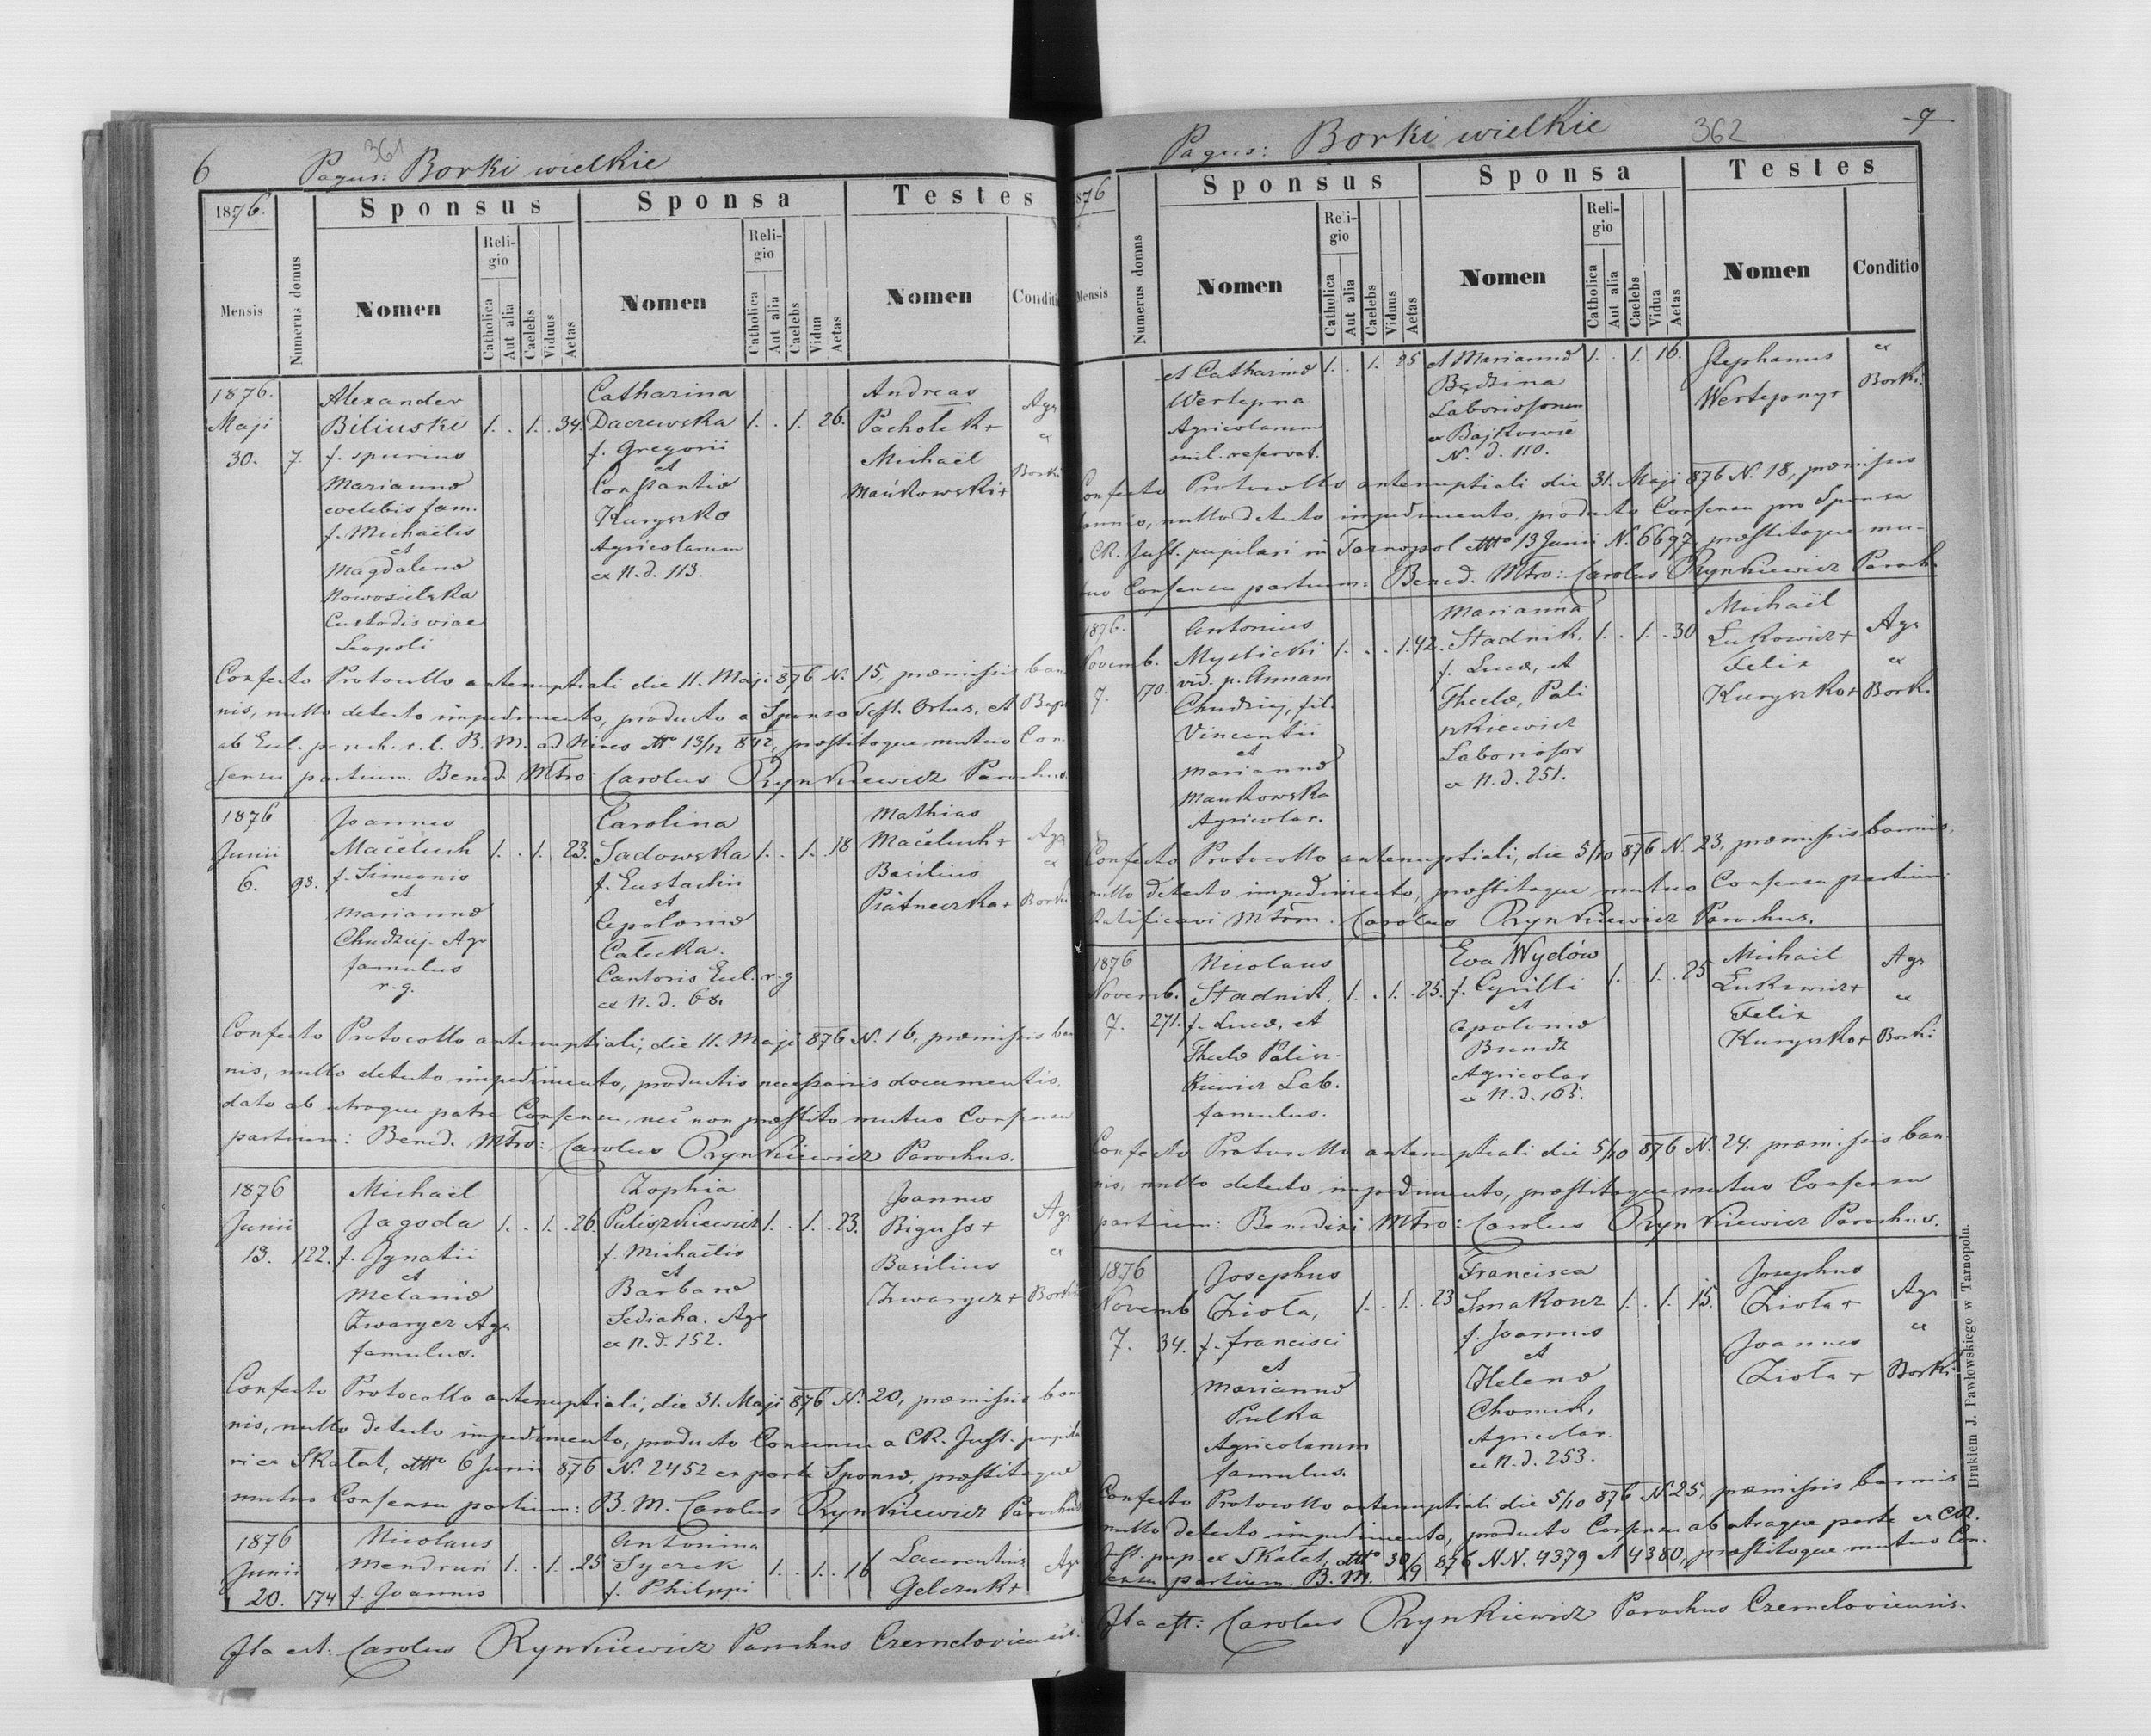 6
361
Pagus: Borki wielkie
1876.
Numerus domus
Sponsus
Sponsa
Testes
Mensis
Nomen
Reli-
gio
Catholica
Aut alia
Caelebs
Viduus
Aetas
Nomen
Reli-
gio
Catholica
Aut alia
Caelebs
Vidua
Aetas
Nomen
Conditi
1876.
Maji
30.
7.
Alexander
Biliński
f. spurius
Mariannæ
coelebis fam.
f. Michaëlis
et
Magdalenæ
Nowosielska
Custodis viae
Leopoli
1. . 1. . 34.
Catharina
Daczewska
f. Gregorii
et
Constantiæ
Kuryszko
Agricolarum
ex N. d. 113.
1. . 1. 26.
Andreas
Pacholek+
Michaël
Mańkowski+
Agr
ex
Borki
Confecto Protocollo antenuptiali die 11. Maji 876 N. 15, præmissis ban
nis, nullo detecto impedimento, producto a Sponso Test. Ortus, et Bapt
ab Eccl. paroch. r. l. B. M. ad Nives dtto 13/12 842, præstitoque mutuo Con
sensu partium. Bened. Mtro: Carolus Rynkiewicz Parochus.
1876
Junii
6.
93.
Joannes
Maceluch
f. Simeonis
et
Mariannæ
Chudziej Agr
famulus
r. g.
1. . 1. 23.
Carolina
Sadowska
f. Eustachii
et
Apoloniæ
Całucka.
Cantoris Eccl. r. g
ex N. d. 68.
1. . 1. .18
Mathias
Maceluch+
Basilius
Piatneczka+
Agr
ex
Borki
Confecto Protocollo antenuptiali, die 11. Maji 876 N. 16, præmissis ban
nis, nullo detecto impedimento, productis necessariis documentis,
dato ab utroque patre Consensu, nec non præstito mutuo Consensu
partium: Bened. Mtro: Carolus Rynkiewicz Parochus.
1876
Junii
13.
122.
Michaël
Jagoda
f. Ignatii
et
Melaniæ
Zwarycz Agr
famulus.
1. . 1. .26.
Zophia
Paliszkiewicz
f. Michaëlis
et
Barbaræ
Sediaha. Agr
ex N. d. 152.
1. . 1. . 23.
Joannes
Biguss+
Basilius
Zwarycz+
Agr
ex
Borki
Confecto Protocollo antenuptiali, die 31. Maji 876 N. 20, præmissis ban
nis, nullo detecto impedimento, producto Consensu a CR. Just. pupila
ri ex Skałat, dtto 6 Junii 876 N. 2452 ex parte Sponsæ, præstitoque
mutuo Consensu partium: B. M. Carolus Rynkiewicz Parochus
1876
Junii
20.
174
Nicolaus
Mendruń
f. Joannis
1. . 1. .25
Antonina
Syczek
f. Philippi
1. . 1. . 16
Laurentius
Gelczuk+
Agr
Ita est: Carolus Rynkiewicz Parochus Czerneloviensis.
Pagus: Borki wielkie
362
7
876
Mensis
Numerus domus
Sponsus
Sponsa
Testes
Nomen
Reli-
gio
Catholica
Aut alia
Caelebs
Viduus
Aetas
Nomen
Reli-
gio
Catholica
Aut alia
Caelebs
Vidua
Aetas
Nomen
Conditio
et Catharinæ
Wertepna
Agricolarum
mil. reservat.
1. . 1. 25
et Mariannæ
Będzina
Laboriosorum
ex Bajkowie
N. d. 110.
1. . 1. 16.
Stephanus
Wertepny+
ex
Borki.
Confecto Protocollo antenuptiali die 31. Maji 876 N. 18, præmissis
bannis, nullo detecto impedimento, producto Consensu pro Sponsa
CR. Just. pupilari in Tarnopol dtto 13 Junii N. 6697, præstitoque mu-
tuo Consensu partium: Bened. Mtro: Carolus Rynkiewicz Paroch.
1876.
Novemb.
7.
170.
Antonius
Mysticki
vid. p. Annam
Chudziej, fil.
Vincentii
et
Mariannæ
Mankowska
Agricolar.
1. . . 1. 42.
Marianna
Stadnik,
f. Lucæ, et
Theclæ, Pali
szkiewicz
Laboriosor
ex N. d. 251.
1. . 1. . 30
Michaël
Lukowicz+
Felix
Kuryszko+
Agr
ex
Borki
Confecto Protocollo antenuptiali, die 5/10 876 N. 23, præmissis bannis,
nullo detecto impedimento, præstitoque mutuo Consensu partium:
Ratificavi Mtrm. Carolus Rynkiewicz Parochus.
1876
Novemb.
7.
271.
Nicolaus
Stadnik,
f. Lucæ, et
Theclæ Palisz-
kiewicz Lab.
famulus.
1. . 1. .25.
Eva Wydów
f. Cyrilli
et
Apoloniæ
Bundz
Agricolar
ex N. d. 165.
1. . 1. . 25
Michaël
Lukowicz+
Felix
Kuryszko+
Agr
ex
Borki
Confecto Protocollo antenuptiali die 5/10 876 N. 24. præmissis ban
nis, nullo detecto impedimento, præstitoque mutuo Consensu
partium: Benedixi Mtro: Carolus Rynkiewicz Parochus.
1876
Novemb
7.
34.
Josephus
Zioła,
f. Francisci
et
Mariannæ
Pulka
Agricolarum
famulus.
1. . 1. . 23
Francisca
Smakouz
f. Joannis
et
Helenæ
Chomik,
Agricolar.
ex N. d. 253.
1. . 1. 15.
Josephus
Zioła+
Joannes
Zioła+
Agr
ex
Borki
Confecto Protocollo antenuptiali die 5/10 876 N 25, præmissis bannis
nullo detecto impedimento, producto Consensu ab utraque parte ex CR.
Just. pup. ex Skałat, dtto 30/9 876 N.N. 4379 et 4380, præstitoque mutuo Con.
sensu partium. B. M.
Ita est: Carolus Rynkiewicz Parochus Czerneloviensis.
Drukiem J. Pawłowskiego w Tarnopolu.